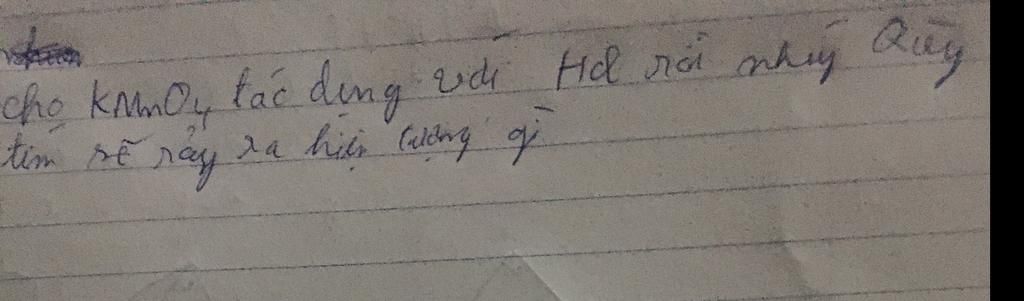 cho KMnO4 tác dụng với Hcl rồi nhúng Quỳ
tím sẽ xảy ra hiện tượng gì